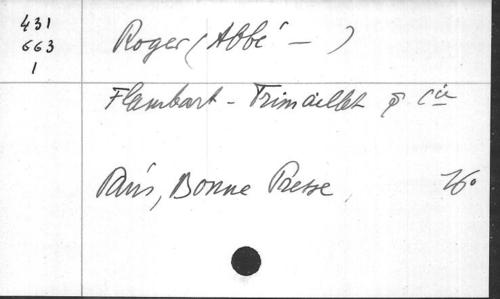 431
663
1
Roger (Abbé - )
Flambart - Trimaillet & Cie
Paris, Bonne Presse,